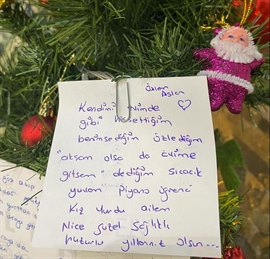 Kendimi evimde
gibi hissettiğim
benimsediğim özlediğim
"akşam olsa da evime
gitsem" dediğim sıcacık
yuvam Piyano Öğrenci
Kız Yurdu ailem
Nice güzel sağlıklı
huzurlu yıllarınız olsun...